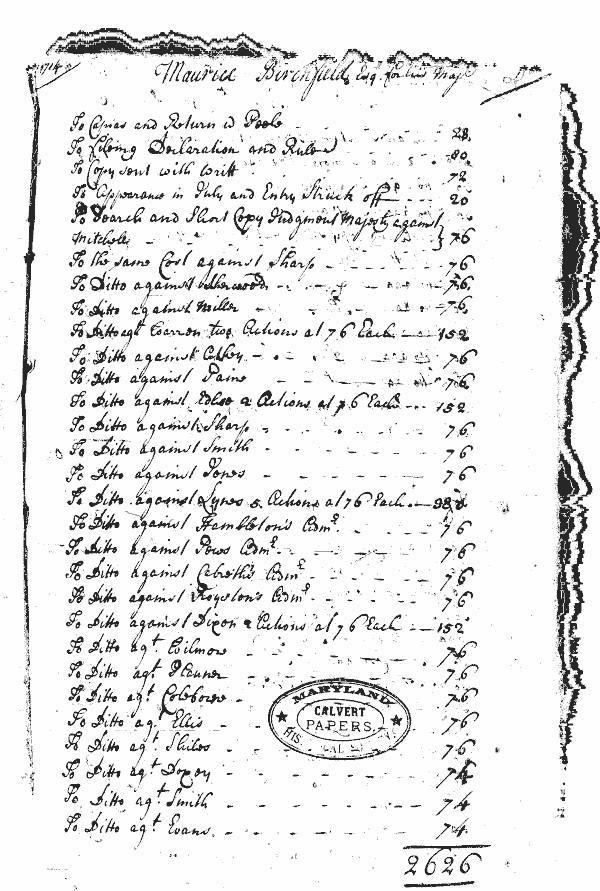 1714
Maurice Birchfield Esq. for his Maj
To Copias and Return is Poole 28.
To fileing Declaration and Rules 80.
To Copy sent with Writt 72
To appearance in July and Entry Struck off 20
To Search and Short Copy Judgment Majesty against
Mitchele 76
To the same Cost against Sharp 76
To Ditto against Sherwood 76.
To Ditto against Miller 76.
To Ditto agt Carron two Actions at 76 Each 152
To Ditto against 76
To Ditto against Paine 76
To Ditto against 2 Actions at 76 Each 152
To Ditto against Sharp 76
To Ditto against Smith 76
To Ditto against Jones 76
To Ditto against Lynes 5 Actions at 76 Each 380
To Ditto against Hambleton's Admr. 76
To Ditto against Pows Admr. 76
To Ditto against Admr. 76
To Ditto against Royston's Admr. 76
To Ditto against Dixon 2 Actions at 76 Each 152
To Ditto agt. Wilmore 76
To Ditto agt. 76
To Ditto agt. Colebourne 76
To Ditto agt Ellis 76
To Ditto agt. Stiles 76
To Ditto agt. 74
To Ditto agt. Smith 74
To Ditto agt. Evans 74
2626
MARYLAND
CALVERT
PAPERS.
HIS CAL